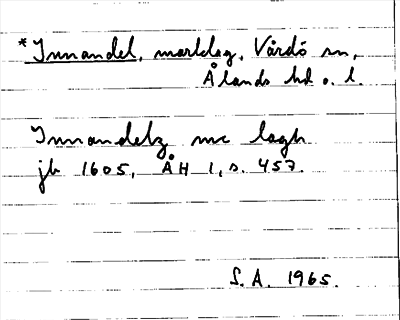 *Innandel, marklag, Vårdö sn,
Ålands hd o. l.
Innandelz mc lagh
jb 1605, ÅH 1, s. 457.
S. A. 1965.